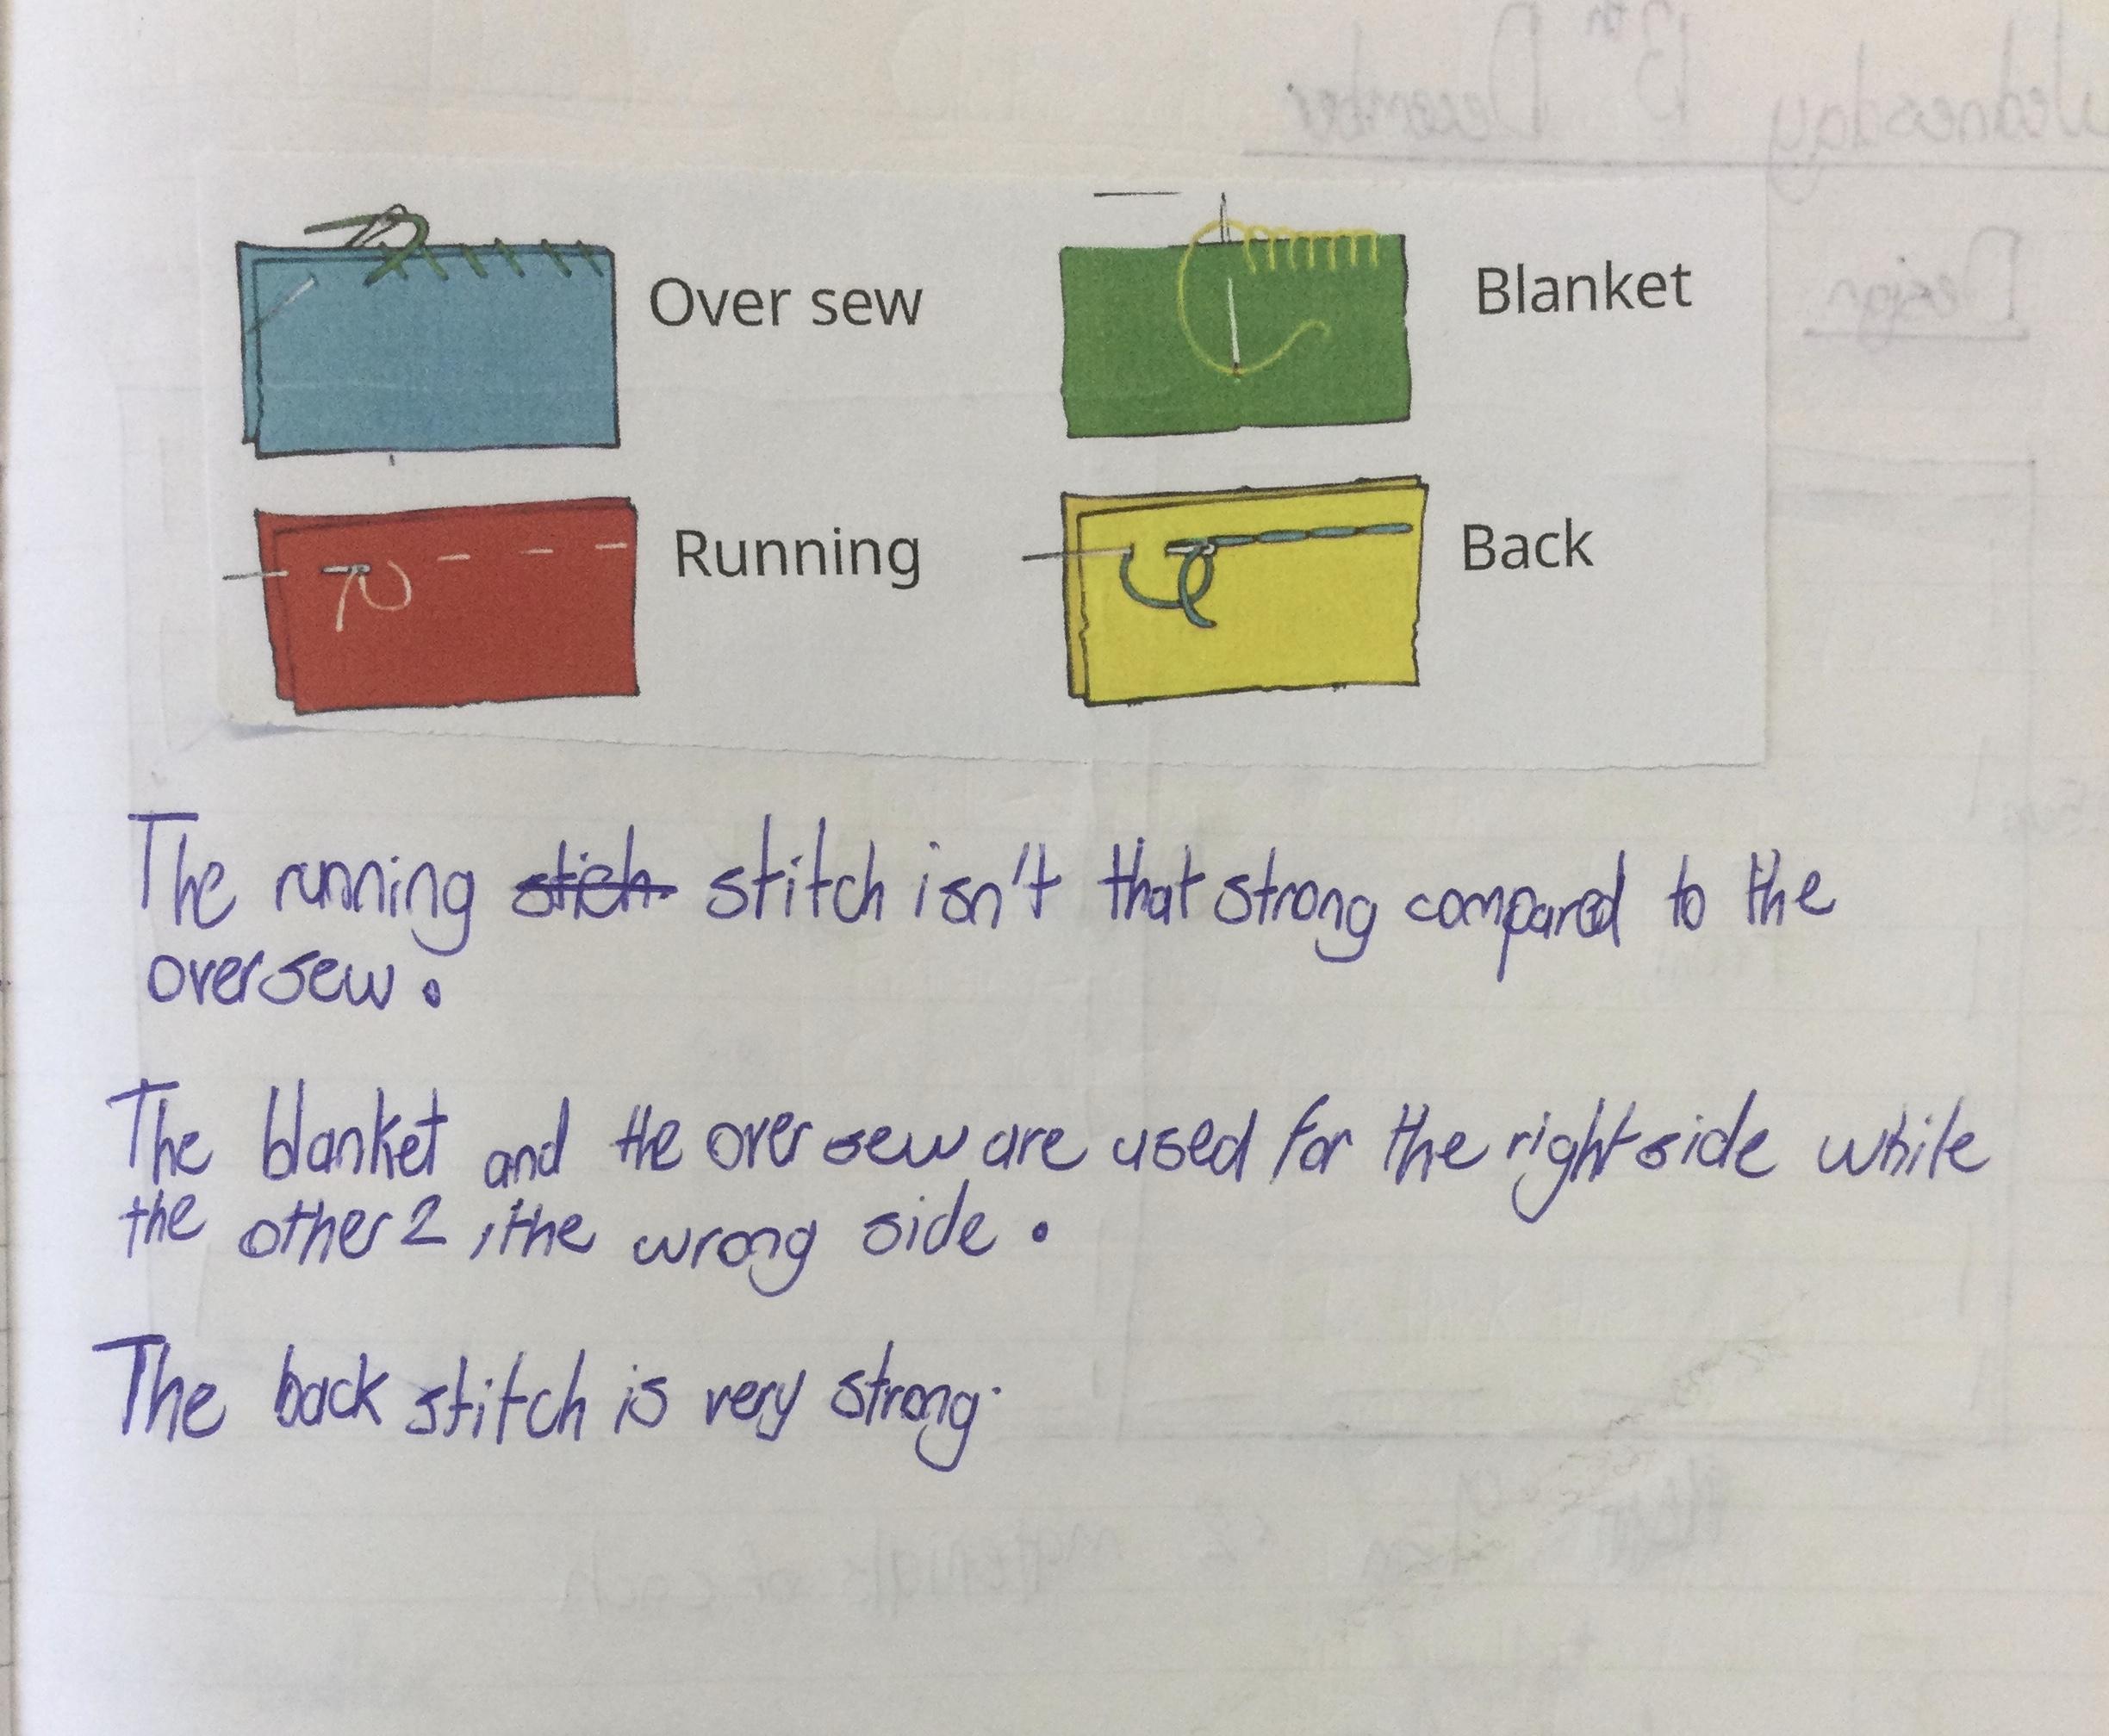 Over sew
Blanket
Running
Back
The running stich stitch isn't that strong compared to the
oversew.
The blanket and the over sew are used for the right side while
the other 2, the wrong side.
The back stitch is very strong.
Wednesday 13th December
Design